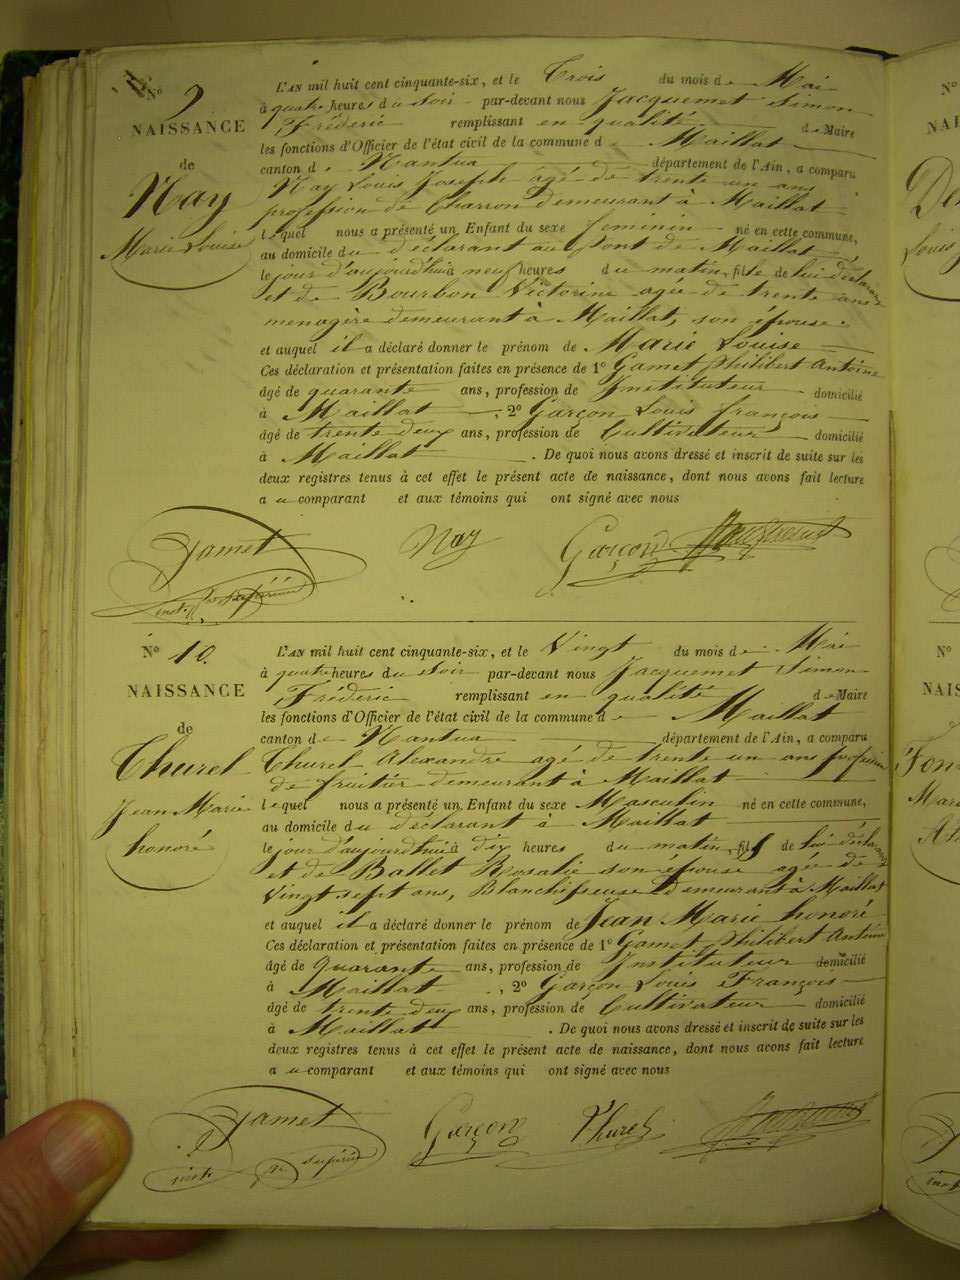 N° 9
NAISSANCE
de
Nay
Marie Louise
L'AN mil huit cent cinquante-six, et le Trois du mois de Mai
à quatre heures du soir par-devant nous Jacquemet Simon
Fréderic remplissant en qualité de Maire
les fonctions d'Officier de l'état civil de la commune de Maillat
canton de Nantua département de l'Ain, a comparu
Nay Louis Joseph agé de trente un ans
profession de Charron demeurant à Maillat
lequel nous a présenté un Enfant du sexe feminin né en cette commune,
au domicile du déclarant au pont de Maillat
le jour d'aujourd'hui à neuf heures du matin, fille de lui déclarant
et de Bourbon Victorine agée de trente ans
menagère demeurant à Maillat, son épouse.
et auquel il a déclaré donner le prénom de Marie Louise
Ces déclaration et présentation faites en présence de 1° Gamet Philibert Antoine
âgé de quarante ans, profession de Instituteur domicilié
à Maillat, 2° Garçon Louis françois
âgé de trente deux ans, profession de Cultivateur domicilié
à Maillat. De quoi nous avons dressé et inscrit de suite sur les
deux registres tenus à cet effet le présent acte de naissance, dont nous avons fait lecture
a u comparant et aux témoins qui ont signé avec nous
Gamet Nay Garçon Jacquemet
N° 10.
NAISSANCE
de
Thurel
Jean Marie
honoré
L'AN mil huit cent cinquante-six, et le Vingt du mois de Mai
à quatre heures du soir par-devant nous Jacquemet Simon
Fréderic remplissant en qualité de Maire
les fonctions d'Officier de l'état civil de la commune de Maillat
canton de Nantua département de l'Ain, a comparu
Thurel Alexandre agé de trente un ans profession
de fruitier demeurant à Maillat
lequel nous a présenté un Enfant du sexe Masculin né en cette commune,
au domicile du déclarant à Maillat
le jour d'aujourd'hui à dix heures du matin, fils de lui déclarant
et de Ballet Rosalie son épouse agée de
Vingt sept ans, Blanchisseuse demeurant à Maillat
et auquel il a déclaré donner le prénom de Jean Marie honoré
Ces déclaration et présentation faites en présence de 1° Gamet Philibert Antoine
âgé de Quarante ans, profession de Instituteur domicilié
à Maillat, 2° Garçon Louis François
âgé de trente deux ans, profession de Cultivateur domicilié
à Maillat. De quoi nous avons dressé et inscrit de suite sur les
deux registres tenus à cet effet le présent acte de naissance, dont nous avons fait lecture
a u comparant et aux témoins qui ont signé avec nous
Gamet Garçon Thurel Jacquemet
inst. supérieur